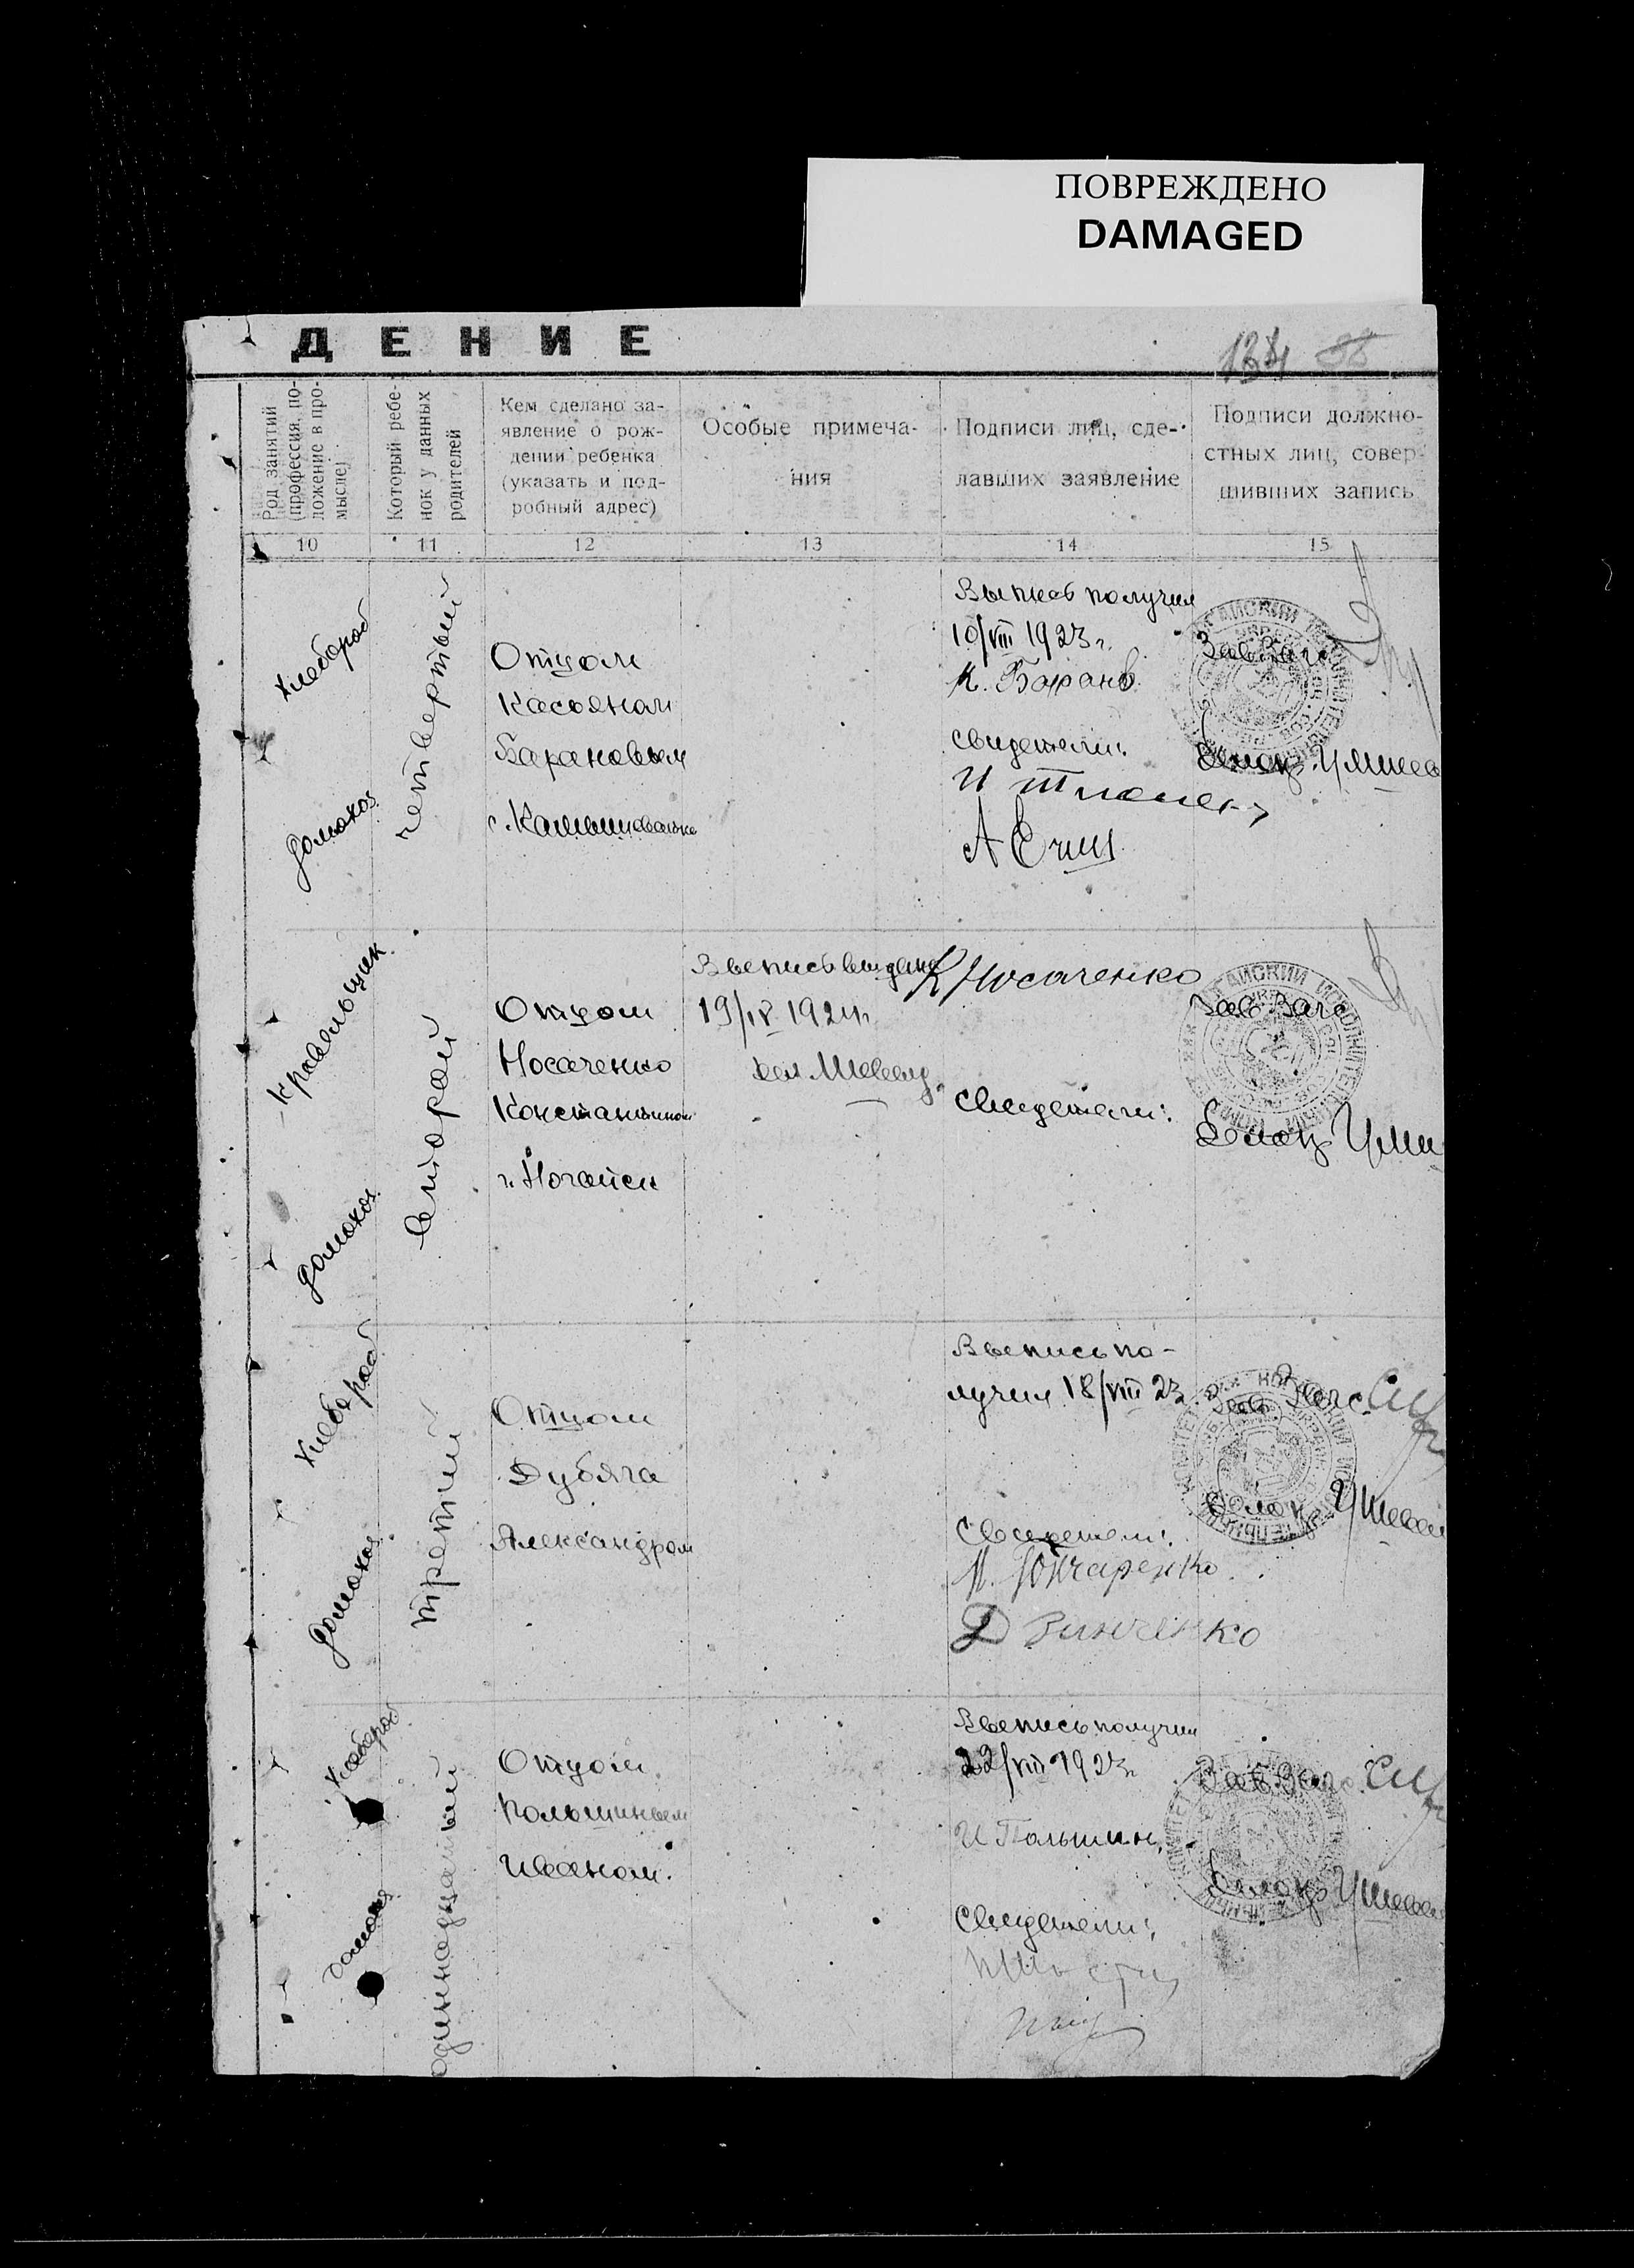 ПОВРЕЖДЕНО
DAMAGED
ДЕНИЕ
Род занятий
(профессия, по-
ложение в про-
мысле)
Который ребе-
нок у данных
родителей
Кем сделано за-
явление о рож-
дении ребенка
(указать и под-
робный адрес)
Особые примеча-
ния
Подписи лиц, сде-
лавших заявление
Подписи должно-
стных лиц, совер-
шивших запись
10
11
12
13
14
15
хлебороб
домохоз.
четвертый
Отцом
Касьяном
Барановым
Выпись получил
10/VIII 1923 г.
К. Баранов
свидетели:
Зав. Загс
кровельщик
домохоз.
второй
Отцом
Носаченко
Константином
г. Ногайск
Выпись выдана
К Носаченко
свидетели:
Зав. Загс
хлебороб
домохоз.
третий
Отцом
Дубяга
Александром
Выпись по-
лучил 18/VIII 23
Свидетели:
М. Гончаренко
Д Зинченко
Зав. Загс
хлебороб
домохоз
одиннадцатый
Отцом
Польшиным
Иваном.
Выпись получил
22/VIII 1923 г.
И Польшин
Свидетели:
Зав. Загс